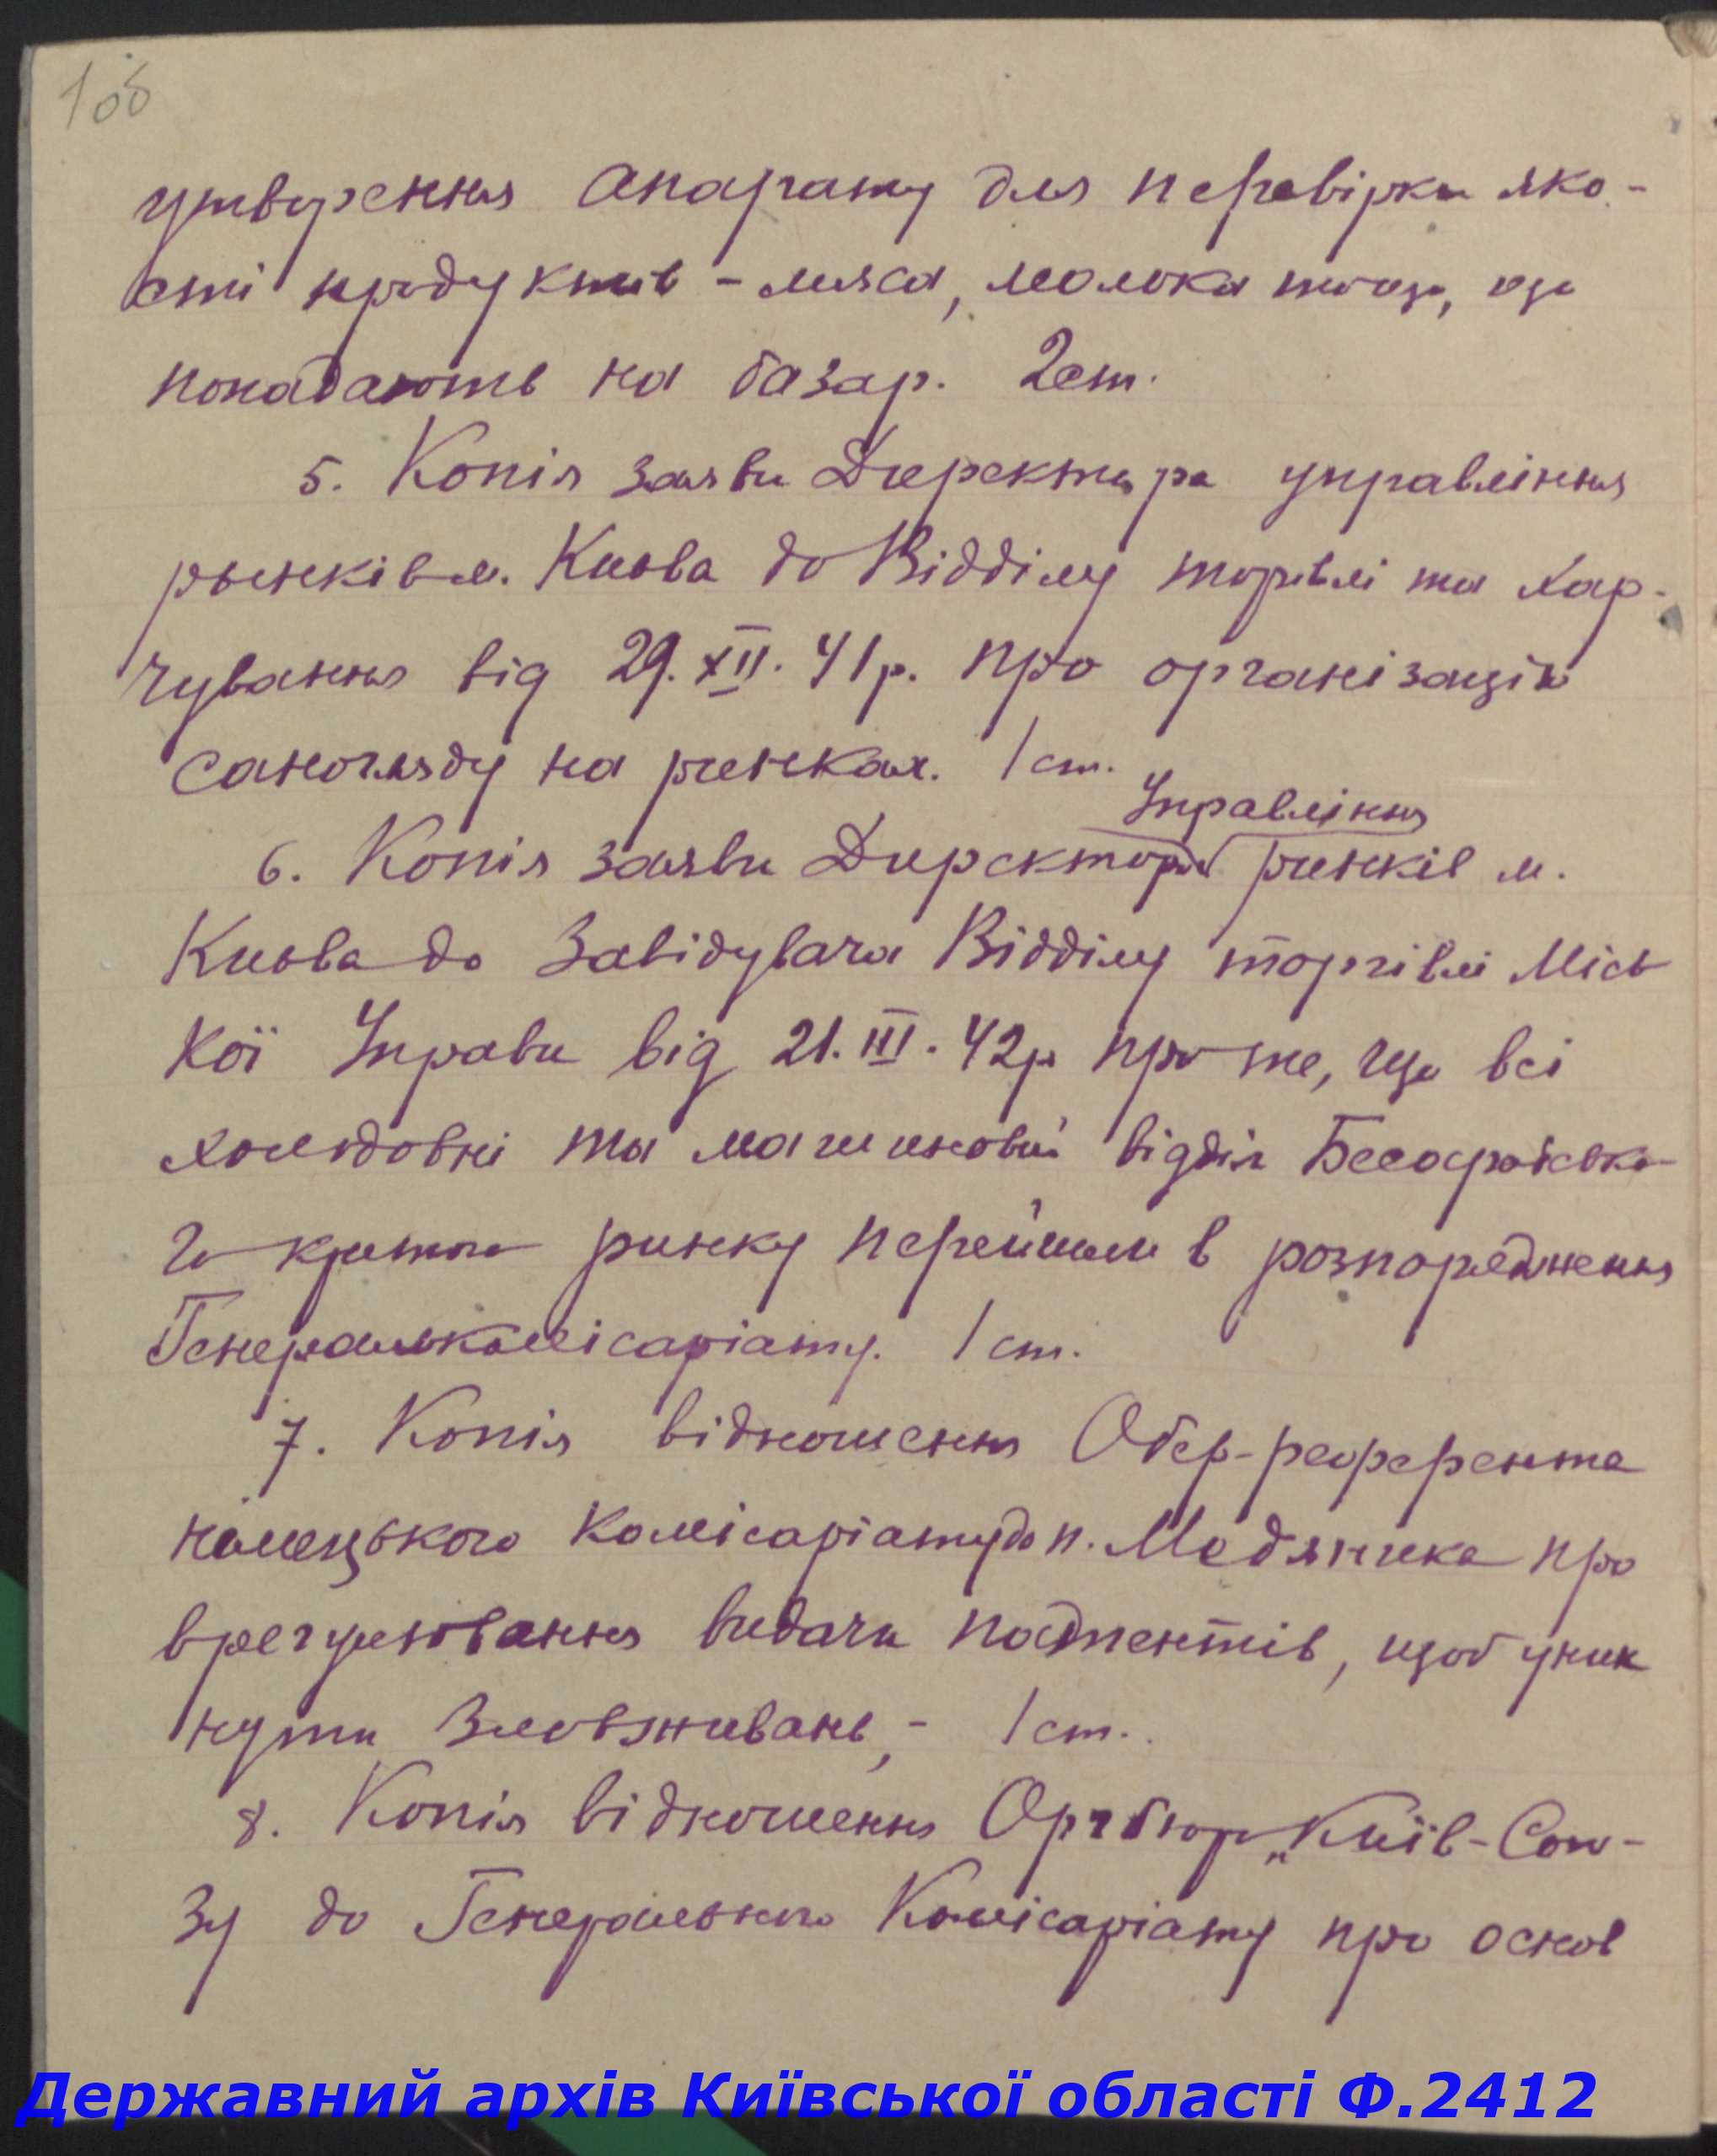 106
утворення апарату для перевірки яко-
сті продуктів - мяса, молока тощо, що
попадають на базар. 2 ст.
5. Копія заяви Директора управління
рынків м. Києва до Відділу торгівлі та хар-
чування від 29.XII.41р. про організацію
саногляду на ринках. 1 ст.
Управління
6. Копія заяви Директора ринків м.
Києва до Завідувача Відділу торгівлі Місь
кої Управи від 21.III.42р про те, що всі
холодовні та машиновий відділ Бесарабсько
го критого ринку перейшли в розпорядження
Генералькомісаріату. 1 ст.
7. Копія відношення Обер-референта
німецького комісаріату до п. Медяника про
врегулювання видачи патентів, щоб уник
нути зловживань, - 1 ст.
8. Копія відношення Оргбюро „Київ-Сою-
зу до Генерального Комісаріату про основ
Державний архів Київської області Ф.2412